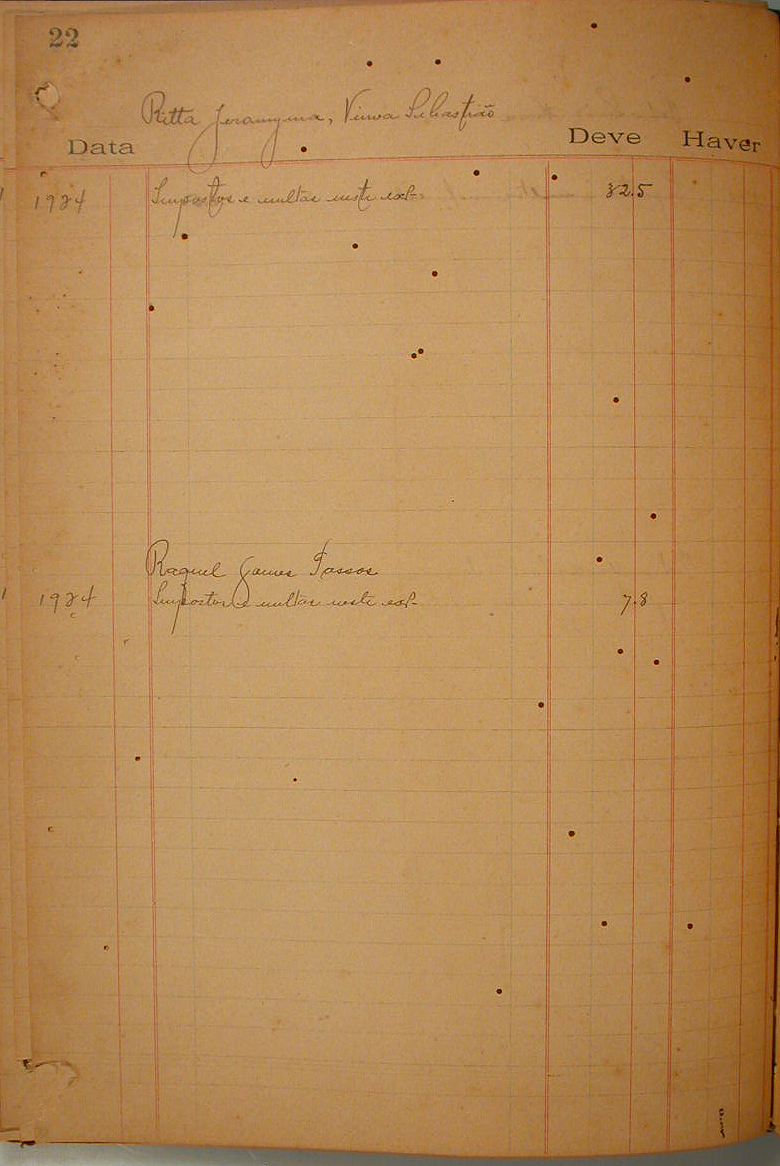 22
Ritta Jeronyma, Viuva Sebastião
Data Deve Haver
1924 Impostos e multas neste exf- 32.5
Raquel Gomes Passos
1924 Impostos e multas neste exf- 7.8